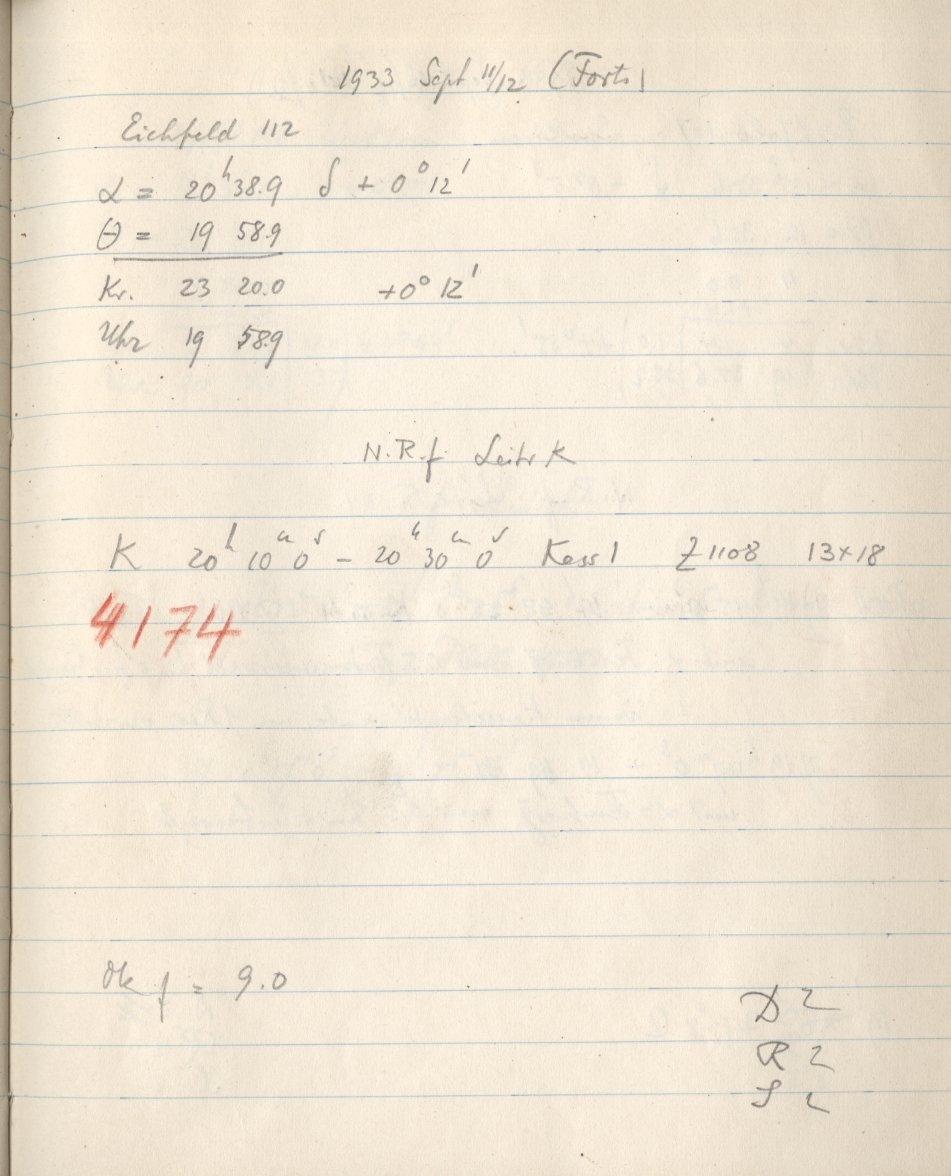 1933 Sept 11/12 (Forts)
Eichfeld 112
α = 20ʰ 38.9 δ + 0° 12'
θ = 19 58.9
Kr. 23 20.0 +0° 12'
Uhr 19 58.9
N.R.f Leitr K
K 20ʰ 10ᵐ 0ˢ – 20ʰ 30ᵐ 0ˢ Kass 1 Z 1108 13×18
4174
Ok f = 9.0
D 2
R 2
S 2